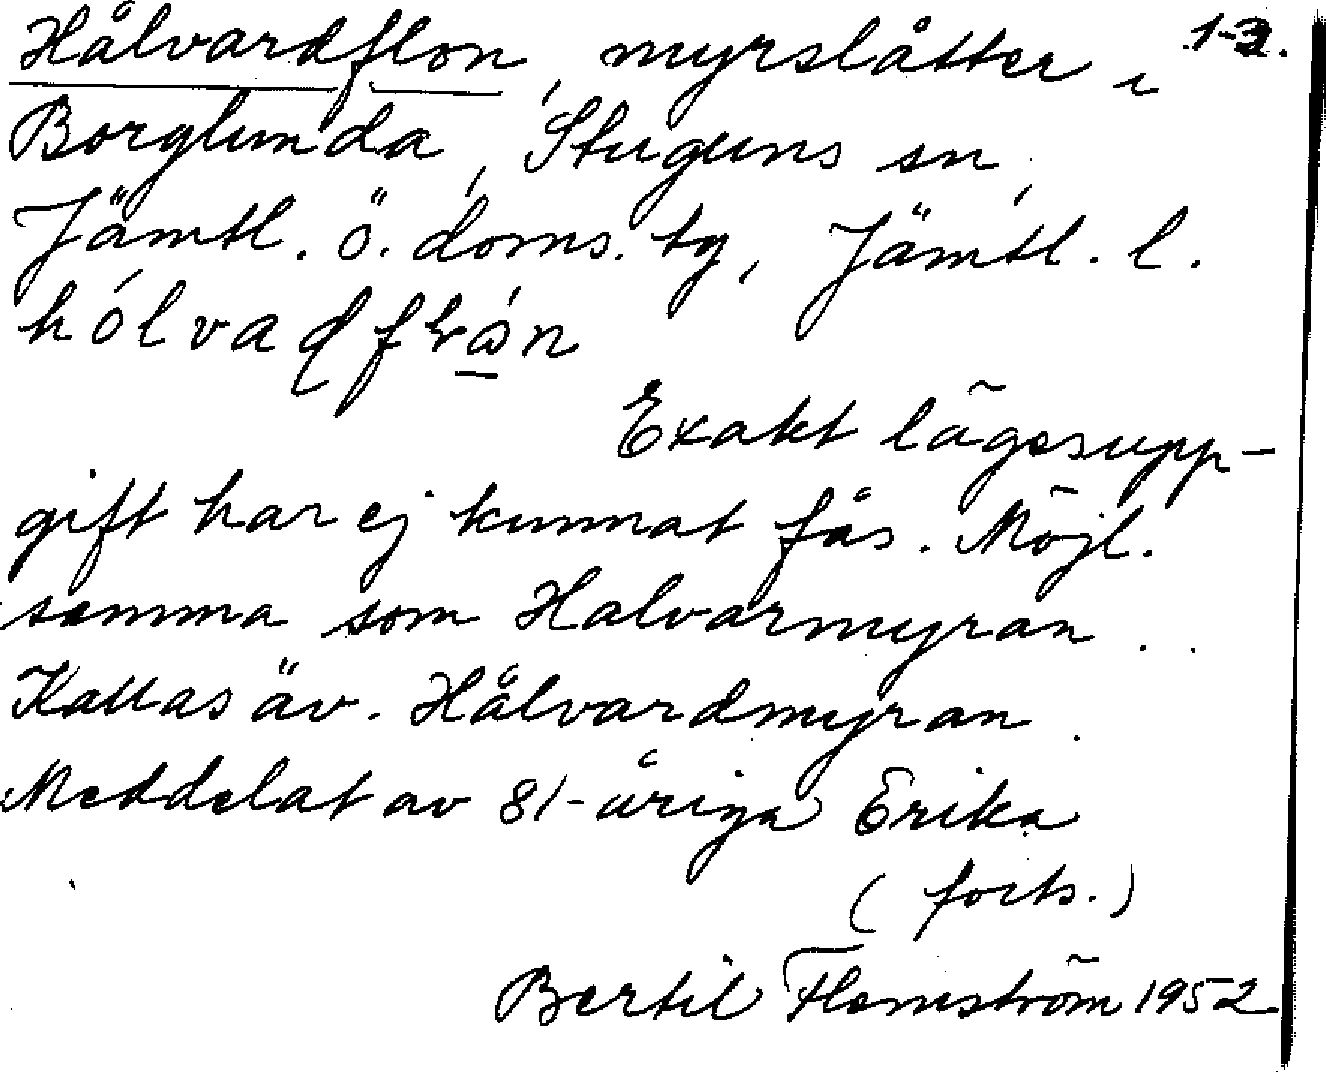 Hålvardflon, myrslåtter i 1-2.
Borglunda, Stuguns sn,
Jämtl. ö. doms. tg, Jämtl. l.
Exakt lägesupp-
gift har ej kunnat fås. Möjl.
samma som Halvarmyran.
Kallas äv. Hålvardmyran.
Meddelat av 81-åriga Erika
(forts.)
Bertil Flemström 1952